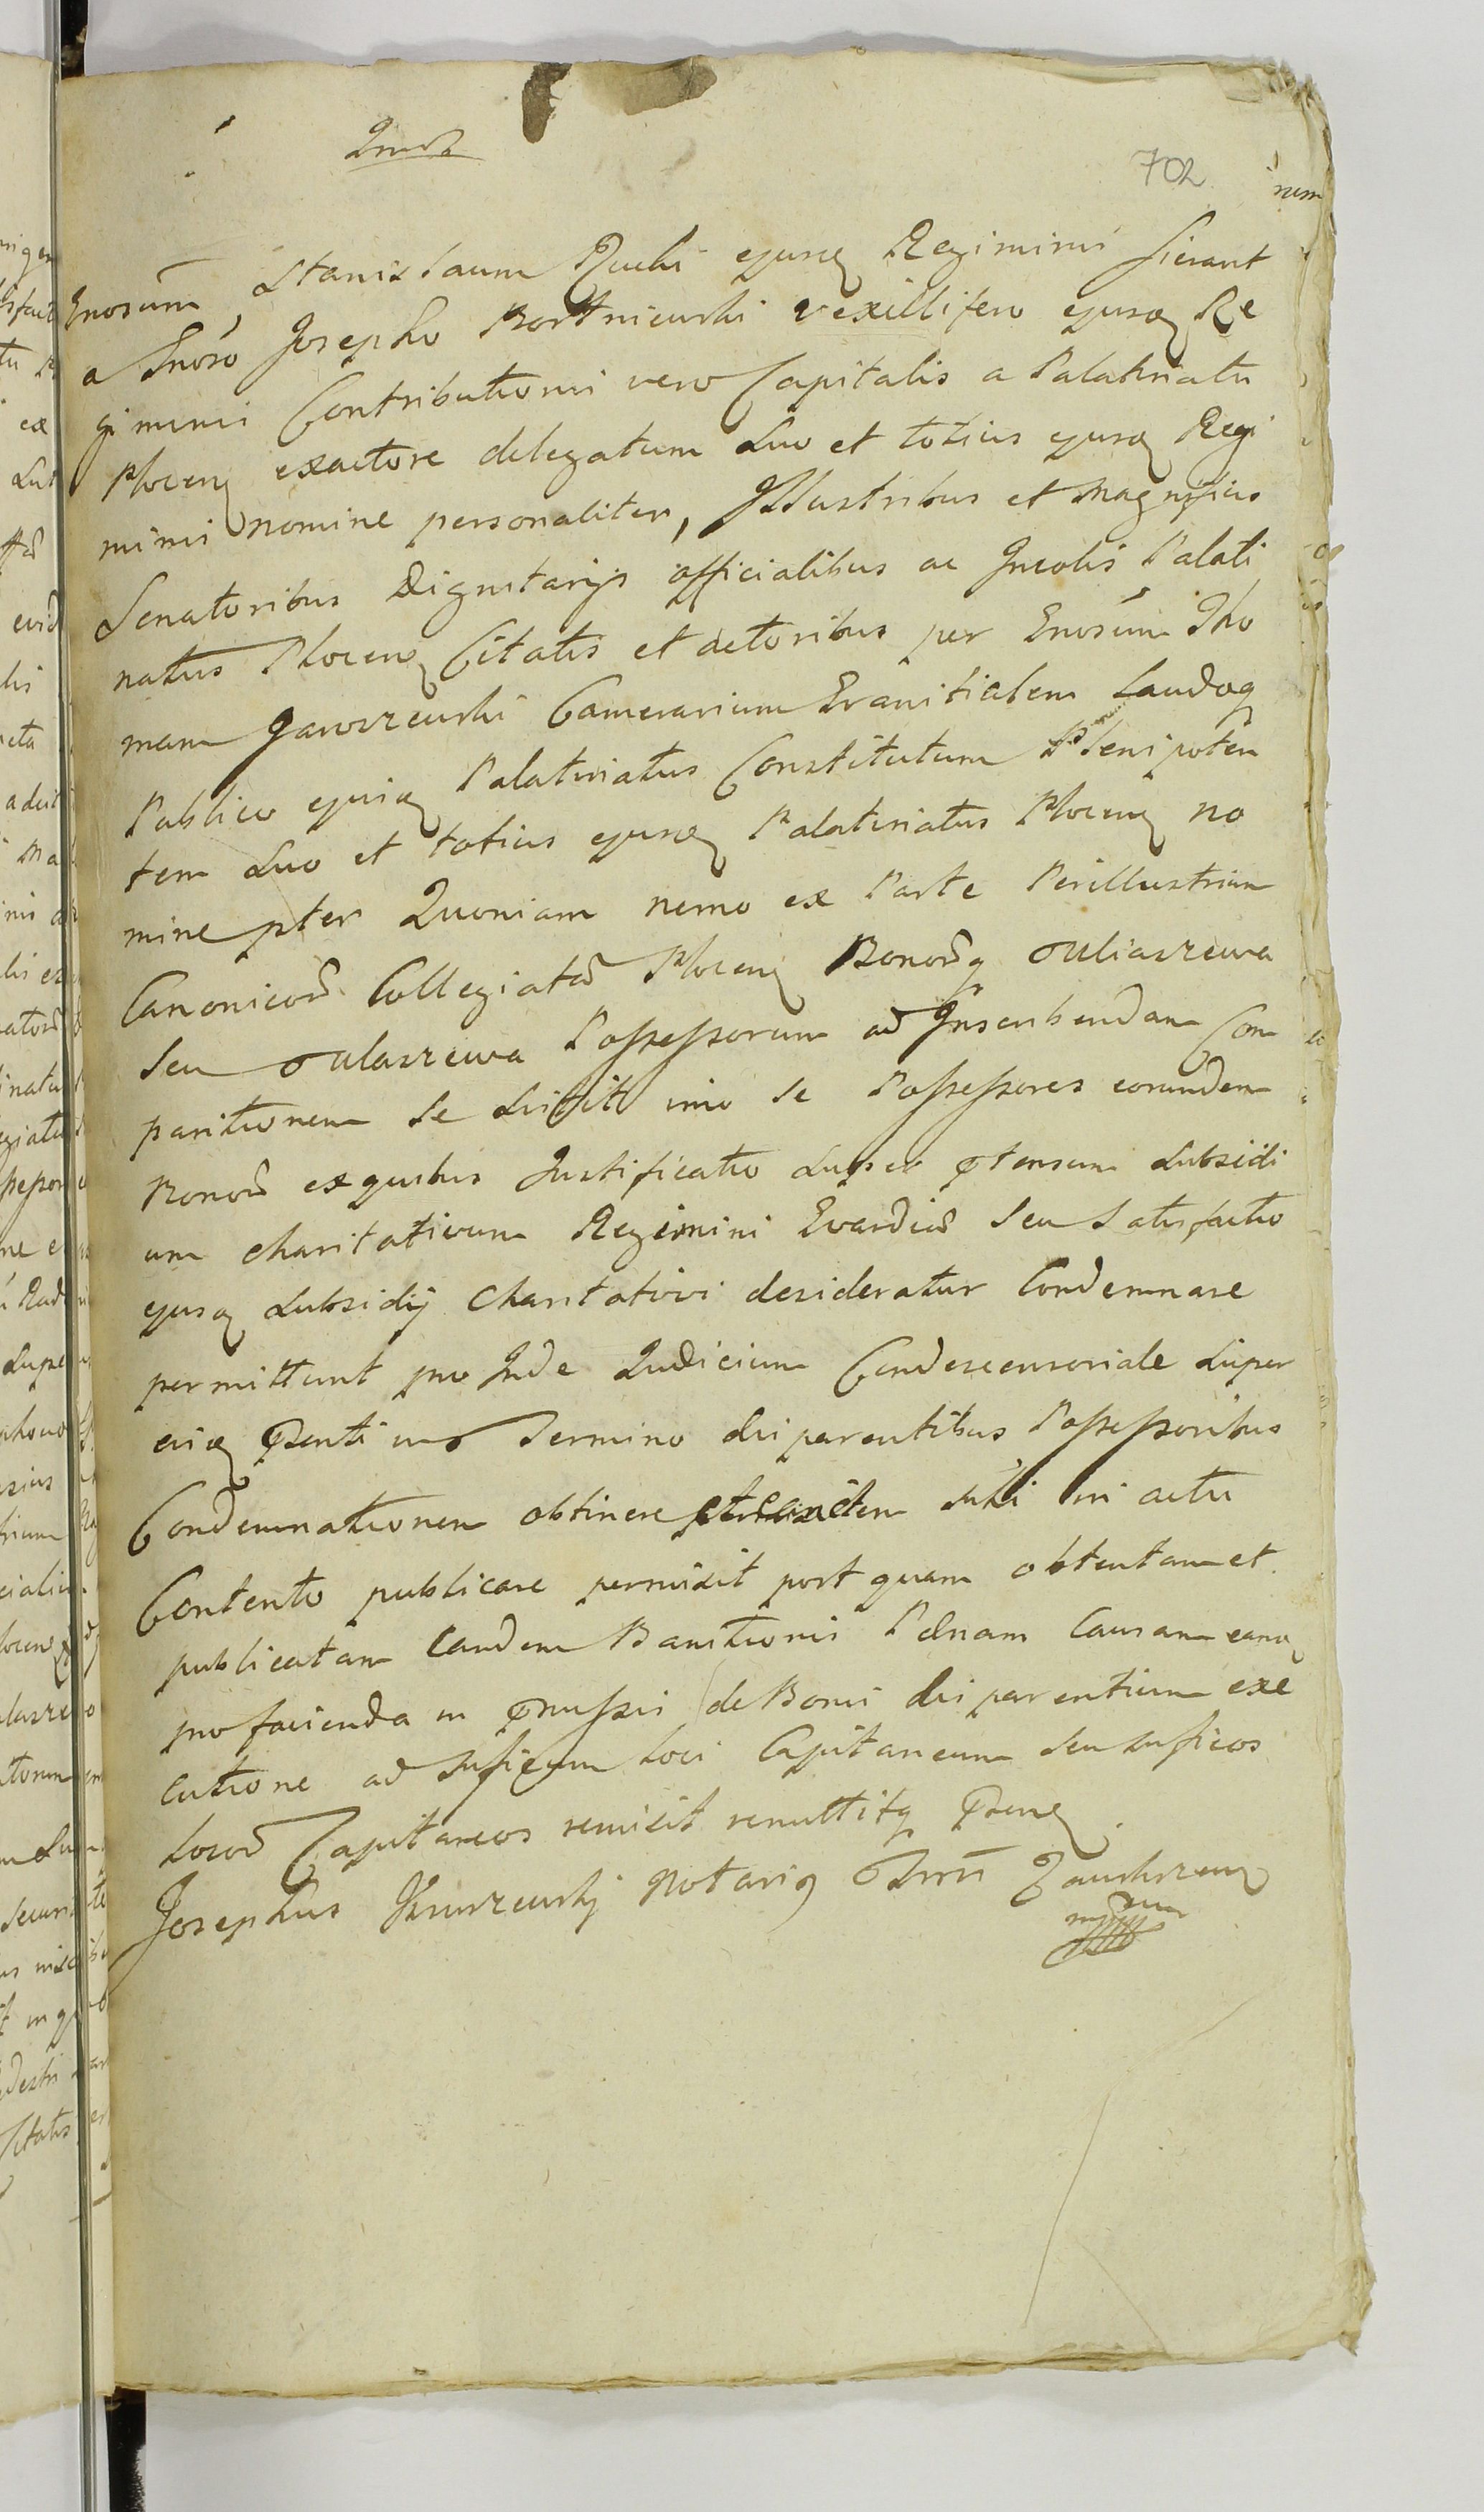 702
Gnosum, Stanislaum Rucki ejusq Regiminis fierant
a Gnoso Josepho Bortniewski vexillifero ejusq Re
giminis Contributionis vero Capitalis a Palatinatu
Plocen exactore delegatum Suo et totius ejusq Regi
minis nomine personaliter, Illustribus et Magnificis
Senatoribus Dignitarijs officialibus ac Incolis Palati
natus Plocen Citatis et actoribus per Gnosum Tho
mam Garszewski Camerarium Granitialem Laudoq
Publico ejusq Palatinatus Constitutum Plenipoten
tem Suo et totius ejusq Palatinatus Plocen no
mine pter Quoniam nemo ex Parte Perillustrium
Canonicor Collegiata Plocen Bonorq Uliaszewa
Seu Ulaszewa Possessorum ad Inscribendam Com
paritionem se stitit imo se Possessores eorundem
Bonor ex quibus Justificatio super ptensum Subsidi
um charitativum Regimini Gvardia seu Satisfactio
ejusq Subsidij Charitativi desideratur Condemnare
permittunt pro Inde Judicium Condescensoriale Super
eiq Psenti uno Termino disparentibus Possessoribus
Condemnationem obtinere et eandem sibi in actu
Contento publicare permisit post quam obtentam et
publicatam Eandem Banitionis Paenam Causam eamq
pro facienda in pmissis de Bonis disparentium exe
cutione ad Sufficium loci Capitaneum seu Sufficos
locor Capitaneos remisit remittitq Psene
Josephus Notariq Trris Zawskrzen
mppria